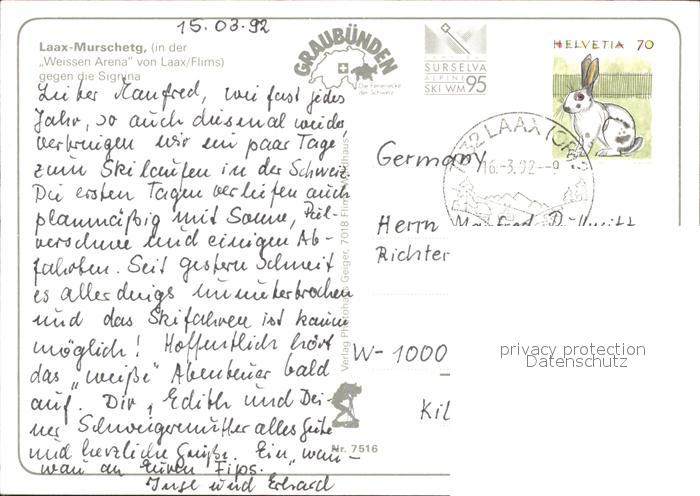 15.03.92
Laax-Murschetg, (in der
„Weissen Arena" von Laax/Flims)
gegen die Signina
Lieber Manfred, wie fast jedes
Jahr, so auch diesmal wieder
verbringen wir ein paar Tage
zum Skilaufen in der Schweiz.
Die ersten Tagen verliefen auch
planmäßig mit Sonne, Pul-
verschnee und einigen Ab-
fahrten. Seit gestern schneit
es allerdings ununterbrochen
und das Skifahren ist kaum
möglich! Hoffentlich hört
das „weiße" Abenteuer bald
auf. Dir, Edith und Dei-
ner Schwiegermutter alles Gute
und herzliche Grüße. Ein „wau-
wau" an Euren Fips.
Inge und Erhard
Verlag Photohaus Geiger, 7018 Flims-Waldhaus
Nr. 7516
GRAUBÜNDEN
Die Ferienecke
der Schweiz
SURSELVA
ALPINE
SKI WM 95
HELVETIA 70
7032 LAAX (GR)
16.-3.92--9
Germany
Herrn Manfred
Richter
W-1000
Kil
privacy protection
Datenschutz